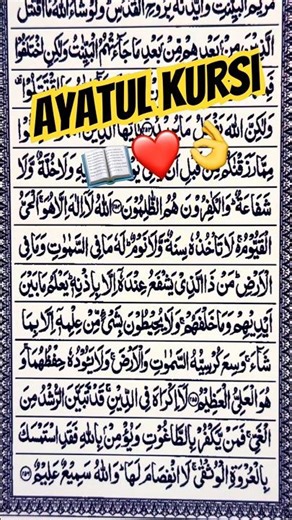 مَرْيَمَ الْبَيِّنٰتِ وَاَيَّدْنٰهُ بِرُوْحِ الْقُدُسِ ؕ وَلَوْ شَآءَ اللّٰهُ مَا اقْتَتَلَ
الَّذِيْنَ مِنْۢ بَعْدِهِمْ مِّنْۢ بَعْدِ مَا جَآءَتْهُمُ الْبَيِّنٰتُ وَلٰكِنِ اخْتَلَفُوْا
AYATUL KURSI
📖❤️👌
وَلٰكِنَّ اللّٰهَ يَفْعَلُ الَّذِيْنَ
مِمَّا رَزَقْنٰكُمْ مِّنْ قَبْلِ اَنْ وَلَا خُلَّةٌ وَّلَا
شَفَاعَةٌ ؕ وَالْكٰفِرُوْنَ هُمُ الظّٰلِمُوْنَ ﴿۲۵۴﴾ اَللّٰهُ لَاۤ اِلٰهَ اِلَّا هُوَ ۚ اَلْحَيُّ
الْقَيُّوْمُ ۚ لَا تَاْخُذُهٗ سِنَةٌ وَّلَا نَوْمٌ ؕ لَهٗ مَا فِي السَّمٰوٰتِ وَمَا فِي
الْاَرْضِ ؕ مَنْ ذَا الَّذِيْ يَشْفَعُ عِنْدَهٗۤ اِلَّا بِاِذْنِهٖ ؕ يَعْلَمُ مَا بَيْنَ
اَيْدِيْهِمْ وَمَا خَلْفَهُمْ ۚ وَلَا يُحِيْطُوْنَ بِشَيْءٍ مِّنْ عِلْمِهٖۤ اِلَّا بِمَا
شَآءَ ۚ وَسِعَ كُرْسِيُّهُ السَّمٰوٰتِ وَالْاَرْضَ ۚ وَلَا يَـُٔوْدُهٗ حِفْظُهُمَا ۚ وَ
هُوَ الْعَلِيُّ الْعَظِيْمُ ﴿۲۵۵﴾ لَاۤ اِكْرَاهَ فِي الدِّيْنِ ۙ قَدْ تَّبَيَّنَ الرُّشْدُ مِنَ
الْغَيِّ ۚ فَمَنْ يَّكْفُرْ بِالطَّاغُوْتِ وَيُؤْمِنْۢ بِاللّٰهِ فَقَدِ اسْتَمْسَكَ
بِالْعُرْوَةِ الْوُثْقٰى ۗ لَا انْفِصَامَ لَهَا ؕ وَاللّٰهُ سَمِيْعٌ عَلِيْمٌ ﴿۲۵۶﴾